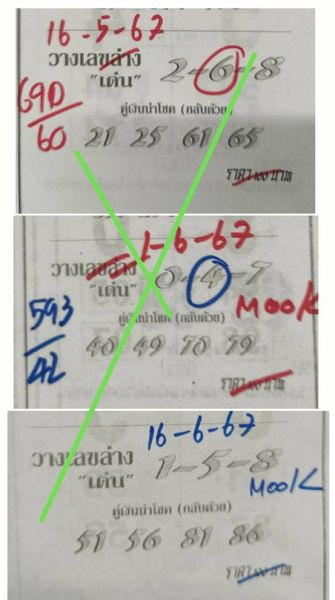 16-5-67
วางเลขล่าง 2-6-8
"เด่น"
690
60
คู่เงินนำโชค (กลับด้วย)
21 25 61 65
ราคา 100 บาท
1-6-67
วางเลขล่าง 0-4-7
"เด่น"
593
42
MOOK
คู่เงินนำโชค (กลับด้วย)
40 49 70 79
ราคา 100 บาท
16-6-67
วางเลขล่าง 1-5-8
"เด่น"
MOOK
คู่เงินนำโชค (กลับด้วย)
51 56 81 86
ราคา 100 บาท